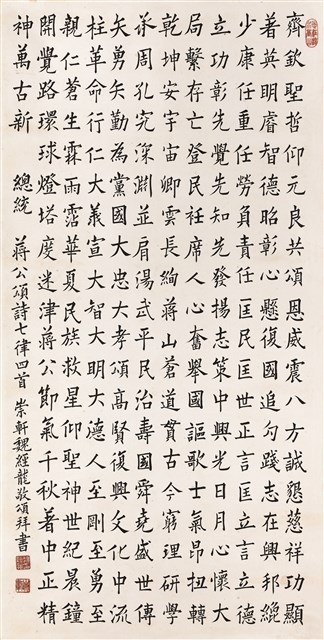 齊欽聖哲仰元良共頌恩威震八方誠懇慈祥功顯
著英明睿智德昭彰心懸復國追勾踐志在興邦
少康任重任勞負責任匡民匡世正言匡立言立德
立功彰先覺先知先發揚志策中興光日月心懷大
局繫存亡登民衽席人心奮舉國謳歌士氣昂扭轉
乾坤安宇宙卿雲長絢蔣山蒼道貫古今窮理研學
承周孔究深淵並肩湯武平民治壽國舜堯盛世傳
矢勇矢勤為黨國大忠大孝頌高賢復興文化中流
柱革命行仁大義宣大智大明大德人至剛至勇至
親仁蒼生霖雨霑華夏民族救星仰聖神世紀晨鐘
開覺路環球燈塔度迷津蔣公節氣千秋著中正精
神萬古新 總統 蔣公頌詩七律四首 崇軒魏經龍敬頌拜書